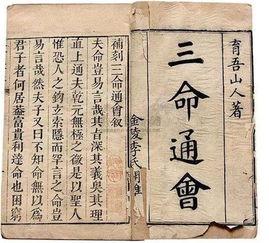 育吾山人著
三命通會
補刻三命通會叙
夫命豈易言哉其旨深其義奧其理
直上通夫乾元無極之後是以聖人
惟恐人之鉤玄索隱而罕言之命豈
易言哉然夫子又曰不知命無以爲
君子者何居蓋富貴利達命也困窮